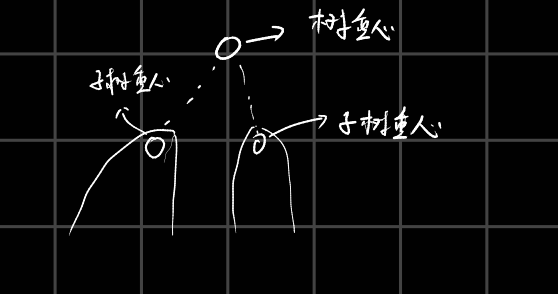 树重心
子树重心
子树重心